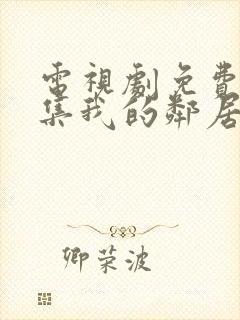 電視劇免費
集我的鄰居
卿荣波